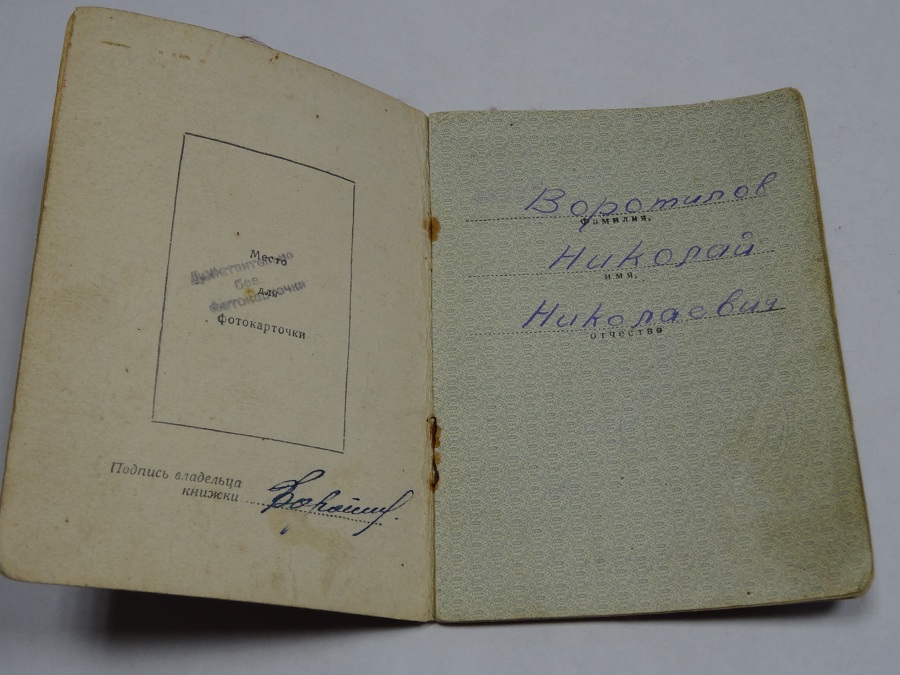 Место
для
фотокарточки
Действительно
без
фотокарточки
Подпись владельца
книжки
Воротилов
фамилия,
Николай
имя,
Николаевич
отчество